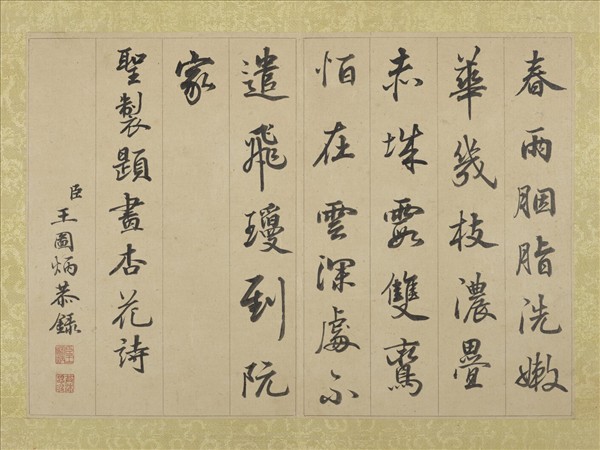 春雨胭脂洗嫩
華幾枝濃疊
赤城霞雙鸞
怕在雲深處不
遣飛瓊到阮
家
聖製題畫杏花詩
臣王圖炳恭錄